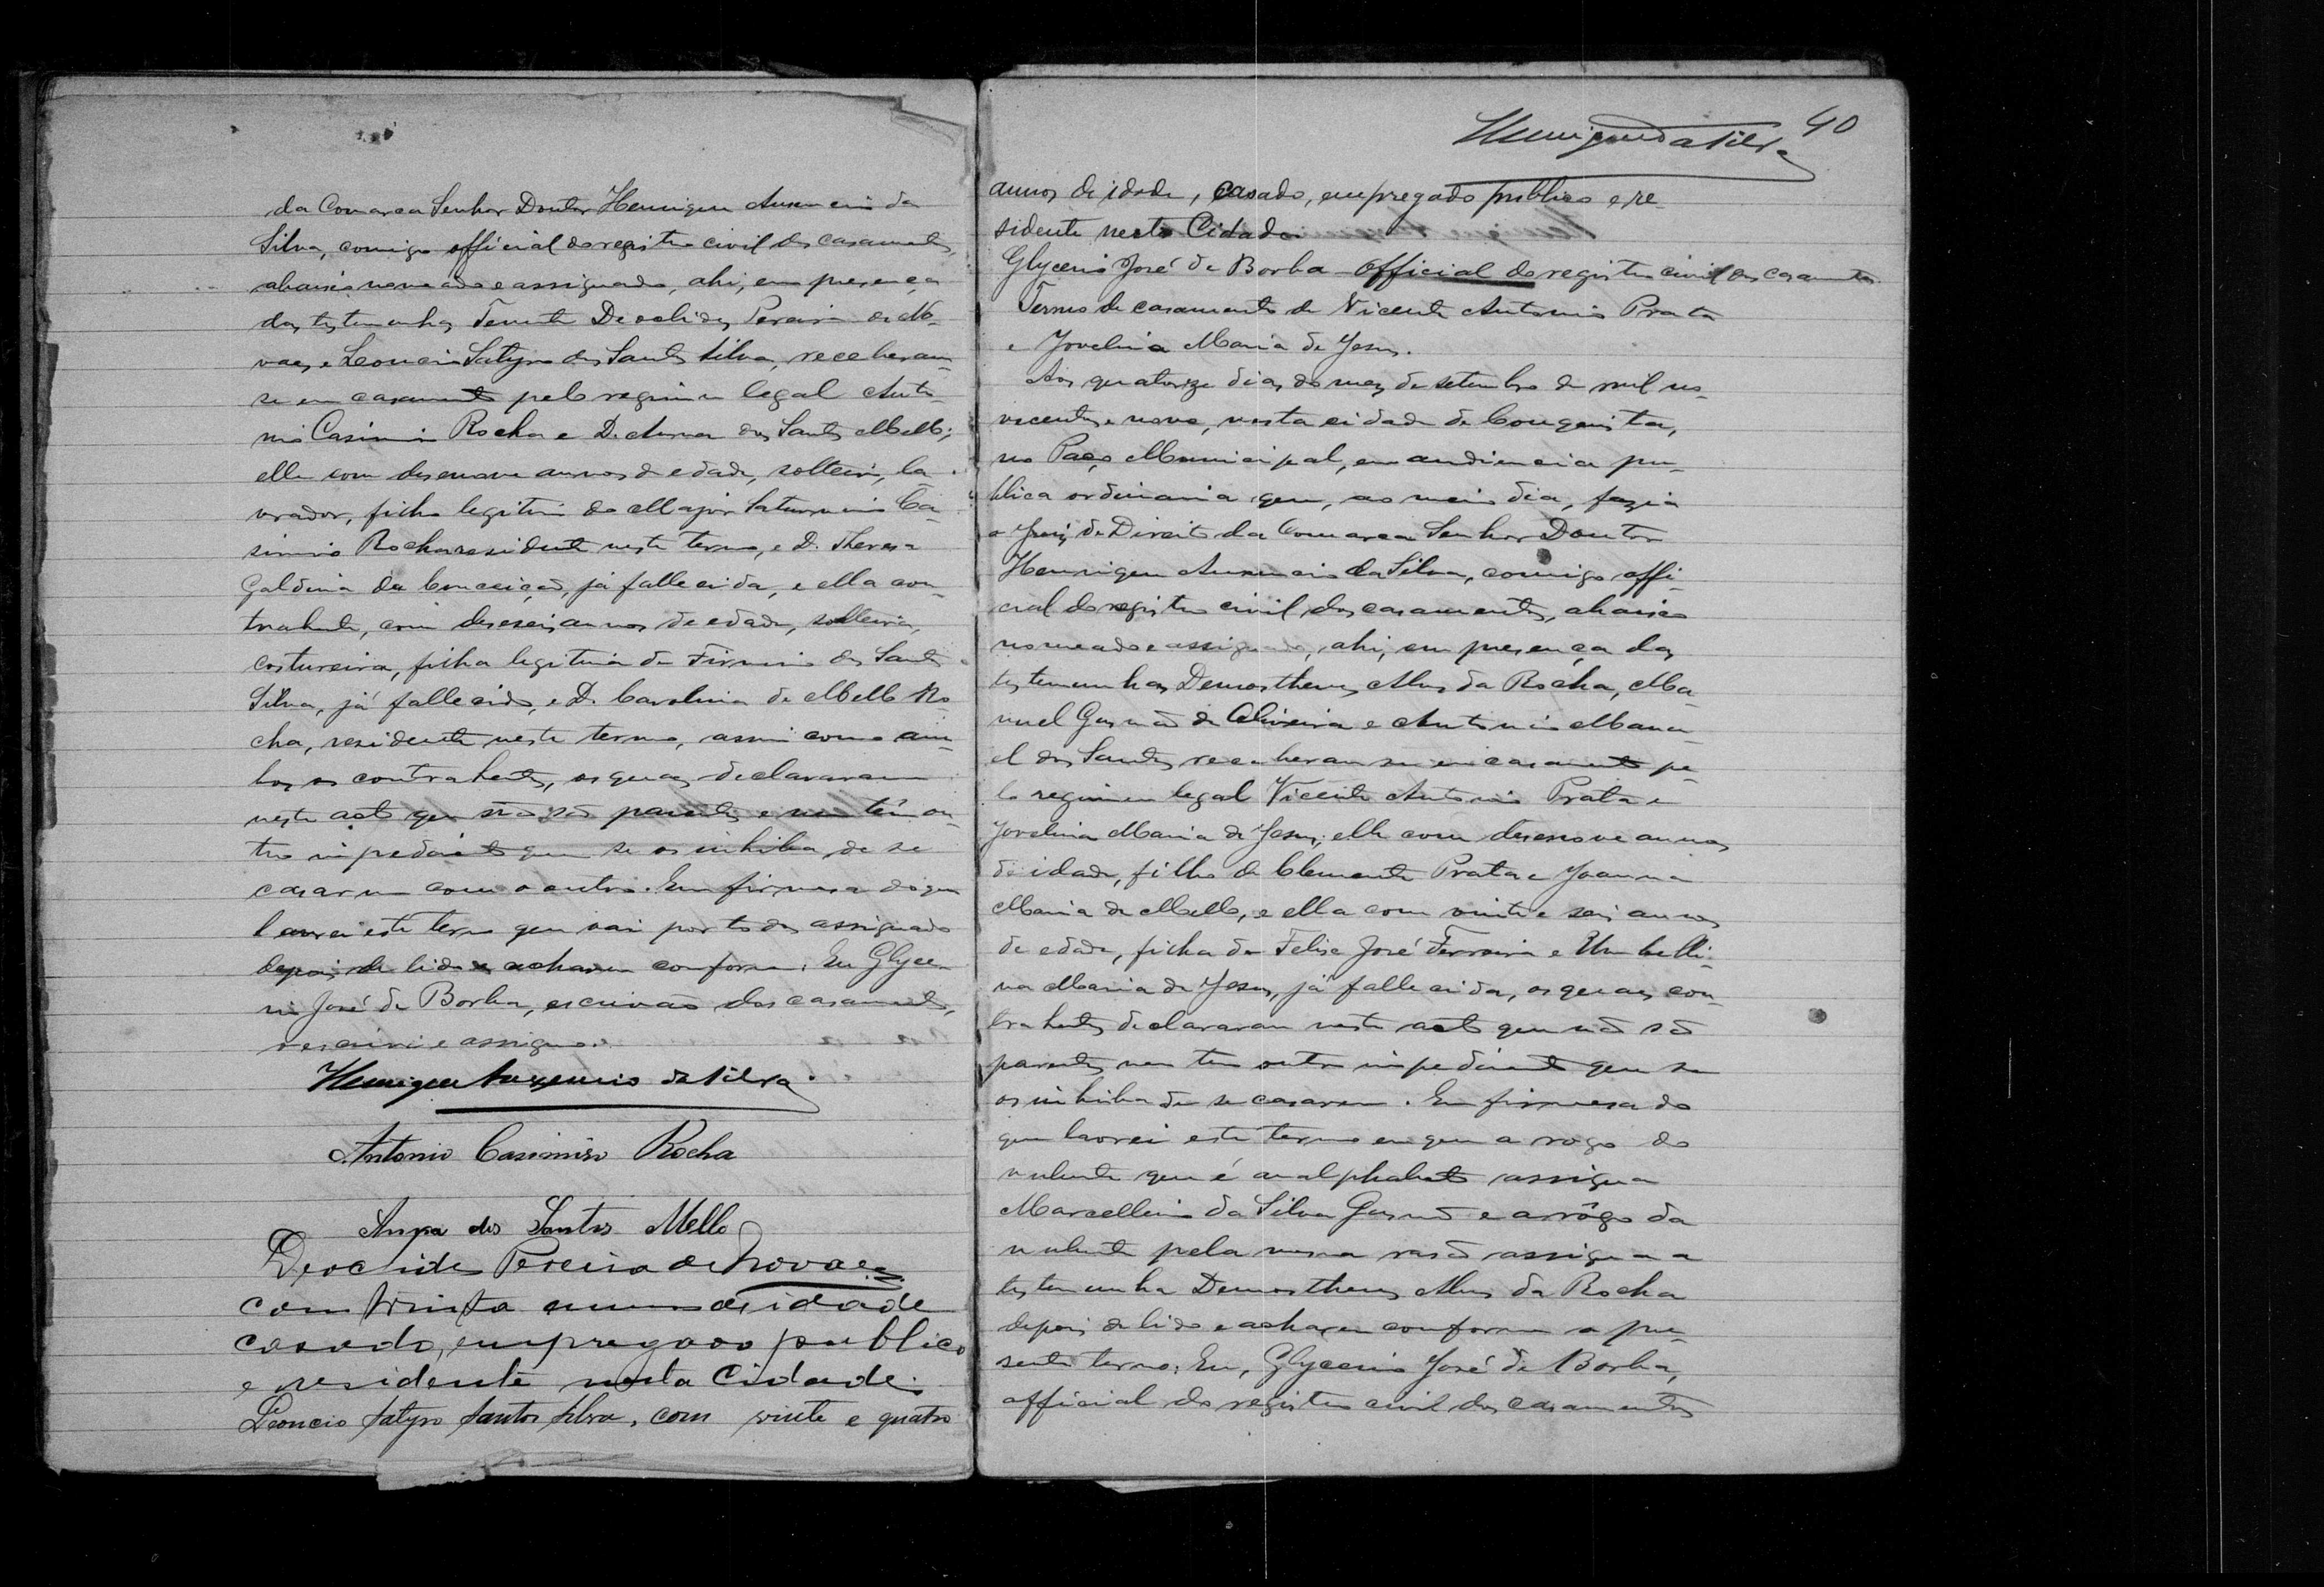 da Comarca Senhor Doutor Henrique Auxencio da
Silva, comigo official do registro civil dos casamentos,
abaixo nomeado e assignado, ahi, em presença
das testemunhas Tenente Deoclides Pereira de No-
vaes e Leoncio Satyro dos Santos Silva, receberam-
se em casamento pelo regimen legal Anto-
nio Casimiro Rocha e D. Anna dos Santos Mello;
elle com desenove annos de edade, solteiro, la-
vrador, filho legitimo do Major Saturnino Ca-
simiro Rocha residente neste termo, e D. Theresa
Galdina da Conceição, já fallecida, e ella con-
trahente, com deseseis annos de edade, solteira,
costureira, filha legitima de Firmino dos Santos
Silva, já fallecido, e D. Carolina de Mello Ro-
cha, residente neste termo, assim como am-
bos os contrahentes, os quaes declararam
neste acto que não são parentes e nem têm ou-
tro impedimento que se os inhiba de se
casar um com o outro. Em firmesa do que
lavrei este termo que vai por todos assignado
depois de lido e acharem conforme. Eu Glyce-
rio José de Borba, escrivão dos casamentos,
o escrivi e assigno.
Henrique Auxencio da Silva.
Antonio Casimiro Rocha
Anna dos Santos Mello
Deoclides Pereira de Novaes
com trinta annos de idade
casado, empregado publico
e residente nesta Cidade.
Leoncio Satyro Santos Silva, com vinte e quatro
40
Henrique da Silva
annos de idade, casado, empregado publico e re-
sidente nesta Cidade.
Glycerio José de Borba - Official do registro civil dos casamentos.
Termo de casamento de Vicente Antonio Prata
e Jovelina Maria de Jesus.
Aos quatorze dias do mez de setembro de mil no-
vecentos e nove, nesta cidade de Conquista,
no Paço Municipal, em audiencia pu-
blica ordinaria que, ao meio dia, fazia
o Juiz de Direito da Comarca Senhor Doutor
Henrique Auxencio da Silva, comigo offi-
cial do registro civil dos casamentos, abaixo
nomeado e assignado, ahi, em presença das
testemunhas Demosthenes Alves da Rocha, Ma-
nuel Gusmão de Oliveira e Antonio Manu-
el dos Santos receberam-se em casamento pe-
lo regimen legal Vicente Antonio Prata e
Jovelina Maria de Jesus; elle com desenove annos
de idade, filho de Clemente Prata e Joanna
Maria de Mello, e ella com vinte e seis annos
de edade, filha de Felix José Ferreira e Umbelli-
na Maria de Jesus, já fallecida, os quaes con-
trahentes declararam neste acto que não são
parentes nem tem outro impedimento que se
os inhiba de se casarem. Em firmesa do
que lavrei este termo em que a rogo do
nubente que é analphabeto assigna
Marcellino da Silva Gusmão e a rôgo da
nubente pela mesma rasão assigna a
testemunha Demosthenes Alves da Rocha
depois de lido e acharem conforme o pre-
sente termo. Eu, Glycerio José de Borba,
official do registro civil dos casamentos